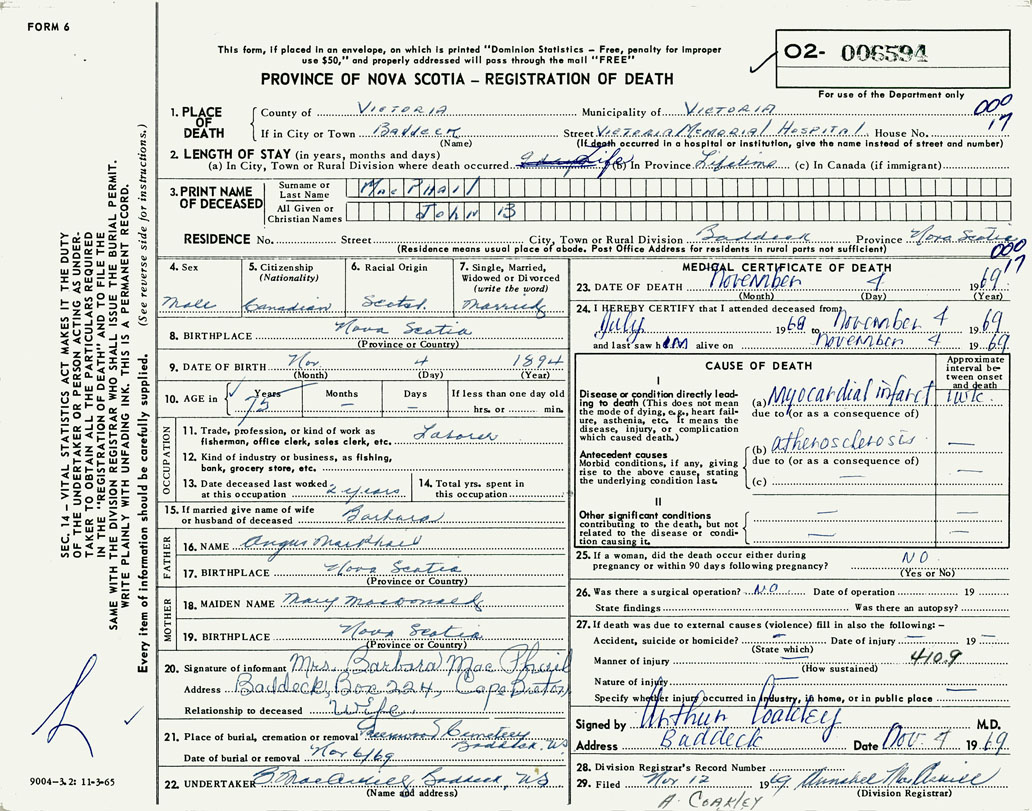 FORM 6
This form, if placed in an envelope, on which is printed "Dominion Statistics – Free, penalty for improper
use $50," and properly addressed will pass through the mail "FREE"
PROVINCE OF NOVA SCOTIA – REGISTRATION OF DEATH
02- 006594
For use of the Department only
000
17
1. PLACE OF DEATH
County of Victoria Municipality of Victoria
If in City or Town Baddeck Street Victoria Memorial Hospital House No.
(Name) (If death occurred in a hospital or institution, give the name instead of street and number)
2. LENGTH OF STAY (in years, months and days)
(a) In City, Town or Rural Division where death occurred Life (b) In Province Lifetime (c) In Canada (if immigrant)
3. PRINT NAME OF DECEASED
Surname or Last Name MacPhail
All Given or Christian Names John B
RESIDENCE No. Street City, Town or Rural Division Baddeck Province Nova Scotia
(Residence means usual place of abode. Post Office Address for residents in rural parts not sufficient)
000
17
4. Sex Male
5. Citizenship (Nationality) Canadian
6. Racial Origin Scotch
7. Single, Married, Widowed or Divorced (write the word) Married
8. BIRTHPLACE Nova Scotia
(Province or Country)
9. DATE OF BIRTH Nov 4 1894
(Month) (Day) (Year)
10. AGE in Years Months Days If less than one day old
75 – – hrs. or min.
OCCUPATION
11. Trade, profession, or kind of work as
fisherman, office clerk, sales clerk, etc. Laborer
12. Kind of industry or business, as fishing,
bank, grocery store, etc.
13. Date deceased last worked
at this occupation 2 years
14. Total yrs. spent in
this occupation
15. If married give name of wife
or husband of deceased Barbara
FATHER
16. NAME Angus MacPhail
17. BIRTHPLACE Nova Scotia
(Province or Country)
MOTHER
18. MAIDEN NAME Mary Macdonald
19. BIRTHPLACE Nova Scotia
(Province or Country)
20. Signature of informant Mrs. Barbara MacPhail
Address Baddeck, Box 224, Cape Breton
Relationship to deceased Wife
21. Place of burial, cremation or removal Cemetery
Baddeck NS
Date of burial or removal Nov 6/69
22. UNDERTAKER Baddeck, NS
(Name and address)
MEDICAL CERTIFICATE OF DEATH
23. DATE OF DEATH November 4 1969
(Month) (Day) (Year)
24. I HEREBY CERTIFY that I attended deceased from
July 1968 to November 4 1969
and last saw him alive on November 4 1969
CAUSE OF DEATH
Approximate interval between onset and death
I
Disease or condition directly leading to death (This does not mean the mode of dying, e.g., heart failure, asthenia, etc. It means the disease, injury, or complication which caused death.)
(a) Myocardial infarct 1 wk.
due to (or as a consequence of)
Antecedent causes
Morbid conditions, if any, giving rise to the above cause, stating the underlying condition last.
(b) atherosclerosis –
due to (or as a consequence of)
(c) – –
II
Other significant conditions
contributing to the death, but not related to the disease or condition causing it.
– –
– –
25. If a woman, did the death occur either during
pregnancy or within 90 days following pregnancy? NO
(Yes or No)
26. Was there a surgical operation? NO Date of operation 19
State findings Was there an autopsy?
27. If death was due to external causes (violence) fill in also the following: –
Accident, suicide or homicide? – Date of injury – 19 –
(State which)
Manner of injury – 410.9
(How sustained)
Nature of injury
Specify whether injury occurred in industry, in home, or in public place –
Signed by Arthur Coakley M.D.
Address Baddeck Date Nov. 4 1969
28. Division Registrar's Record Number
29. Filed Nov 12 1969 Annabel
(Division Registrar)
A. COAKLEY
SEC. 14 – VITAL STATISTICS ACT MAKES IT THE DUTY
OF THE UNDERTAKER OR PERSON ACTING AS UNDER-
TAKER TO OBTAIN ALL THE PARTICULARS REQUIRED
IN THE "REGISTRATION OF DEATH" AND TO FILE THE
SAME WITH THE DIVISION REGISTRAR WHO SHALL ISSUE THE BURIAL PERMIT.
WRITE PLAINLY WITH UNFADING INK. THIS IS A PERMANENT RECORD.
Every item of information should be carefully supplied. (See reverse side for instructions.)
9004–3.2: 11-3-65